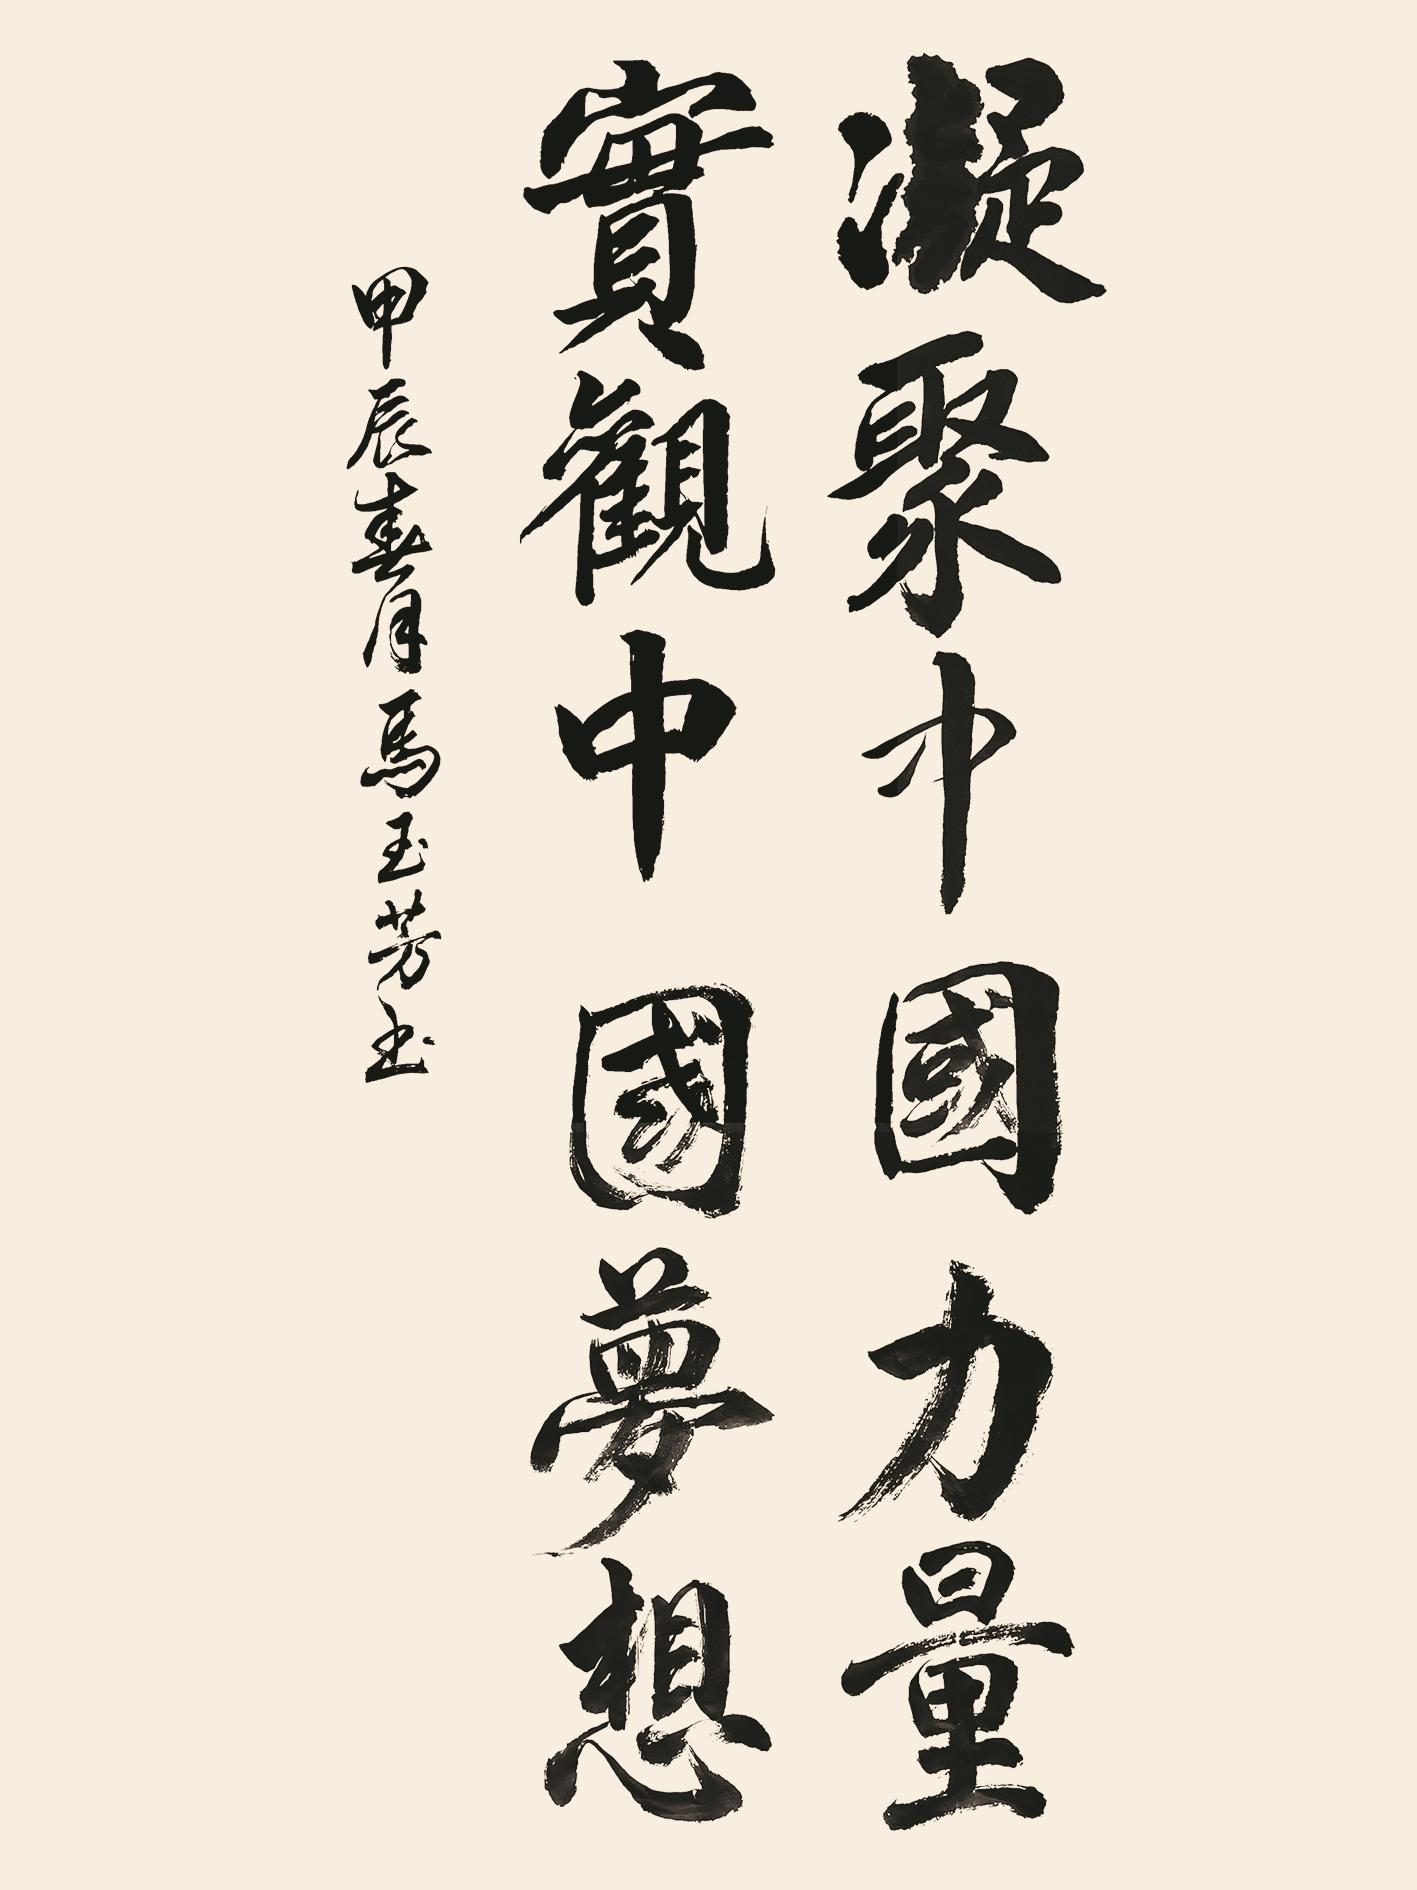 凝聚中國力量
實觀中國夢想
甲辰春月馬玉芳书